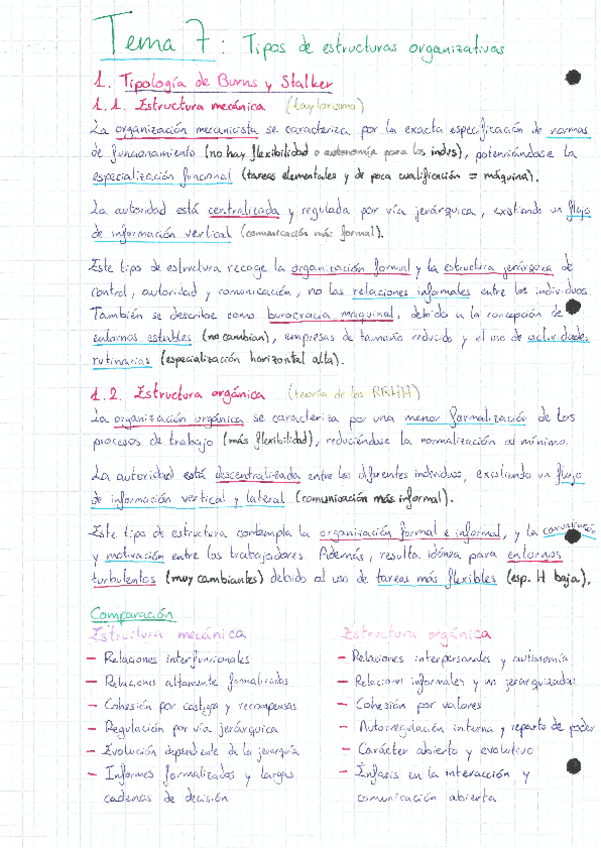 Tema 7: Tipos de estructuras organizativas
1. Tipología de Burns y Stalker
1.1. Estructura mecánica (taylorismo)
La organización mecanicista se caracteriza por la exacta especificación de normas
de funcionamiento (no hay flexibilidad o autonomía para los indivs), potenciándose la
especialización funcional (tareas elementales y de poca cualificación = máquina).
La autoridad está centralizada y regulada por vía jerárquica, existiendo un flujo
de información vertical (comunicación más formal).
Este tipo de estructura recoge la organización formal y la estructura jerárquica de
control, autoridad y comunicación, no las relaciones informales entre los individuos.
También se describe como burocracia maquinal, debido a la concepción de
entornos estables (no cambian), empresas de tamaño reducido y el uso de actividades
rutinarias (especialización horizontal alta).
1.2. Estructura orgánica (teoría de los RRHH)
La organización orgánica se caracteriza por una menor formalización de los
procesos de trabajo (más flexibilidad), reduciéndose la normalización al mínimo.
La autoridad está descentralizada entre los diferentes individuos, existiendo un flujo
de información vertical y lateral (comunicación más informal).
Este tipo de estructura contempla la organización formal e informal, y la
y motivación entre los trabajadores. Además, resulta idónea para entornos
turbulentos (muy cambiantes) debido al uso de tareas más flexibles (esp. H baja).
Comparación
Estructura mecánica
- Relaciones interfuncionales
- Relaciones altamente formalizadas
- Cohesión por castigos y recompensas
- Regulación por vía jerárquica
- Evolución dependiente de la jerarquía
- Informes formalizados y largas
cadenas de decisión
Estructura orgánica
- Relaciones interpersonales y autonomía
- Relaciones informales y no jerarquizadas
- Cohesión por valores
- Autorregulación interna y reparto de poder
- Carácter abierto y evolutivo
- Énfasis en la interacción y
comunicación abierta